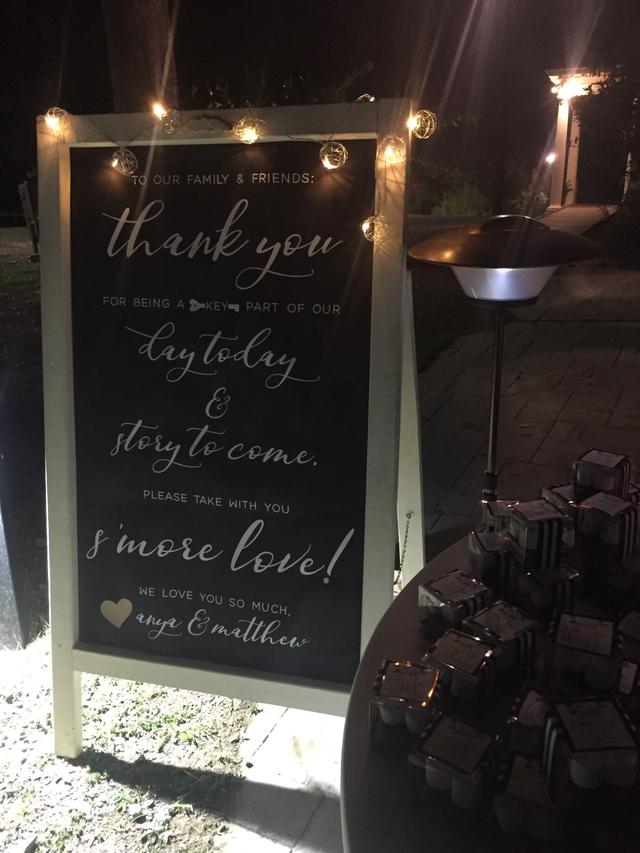 TO OUR FAMILY & FRIENDS:
thank you
FOR BEING A KEY PART OF OUR
day today
&
story to come.
PLEASE TAKE WITH YOU
s'more love!
WE LOVE YOU SO MUCH,
anya & matthew